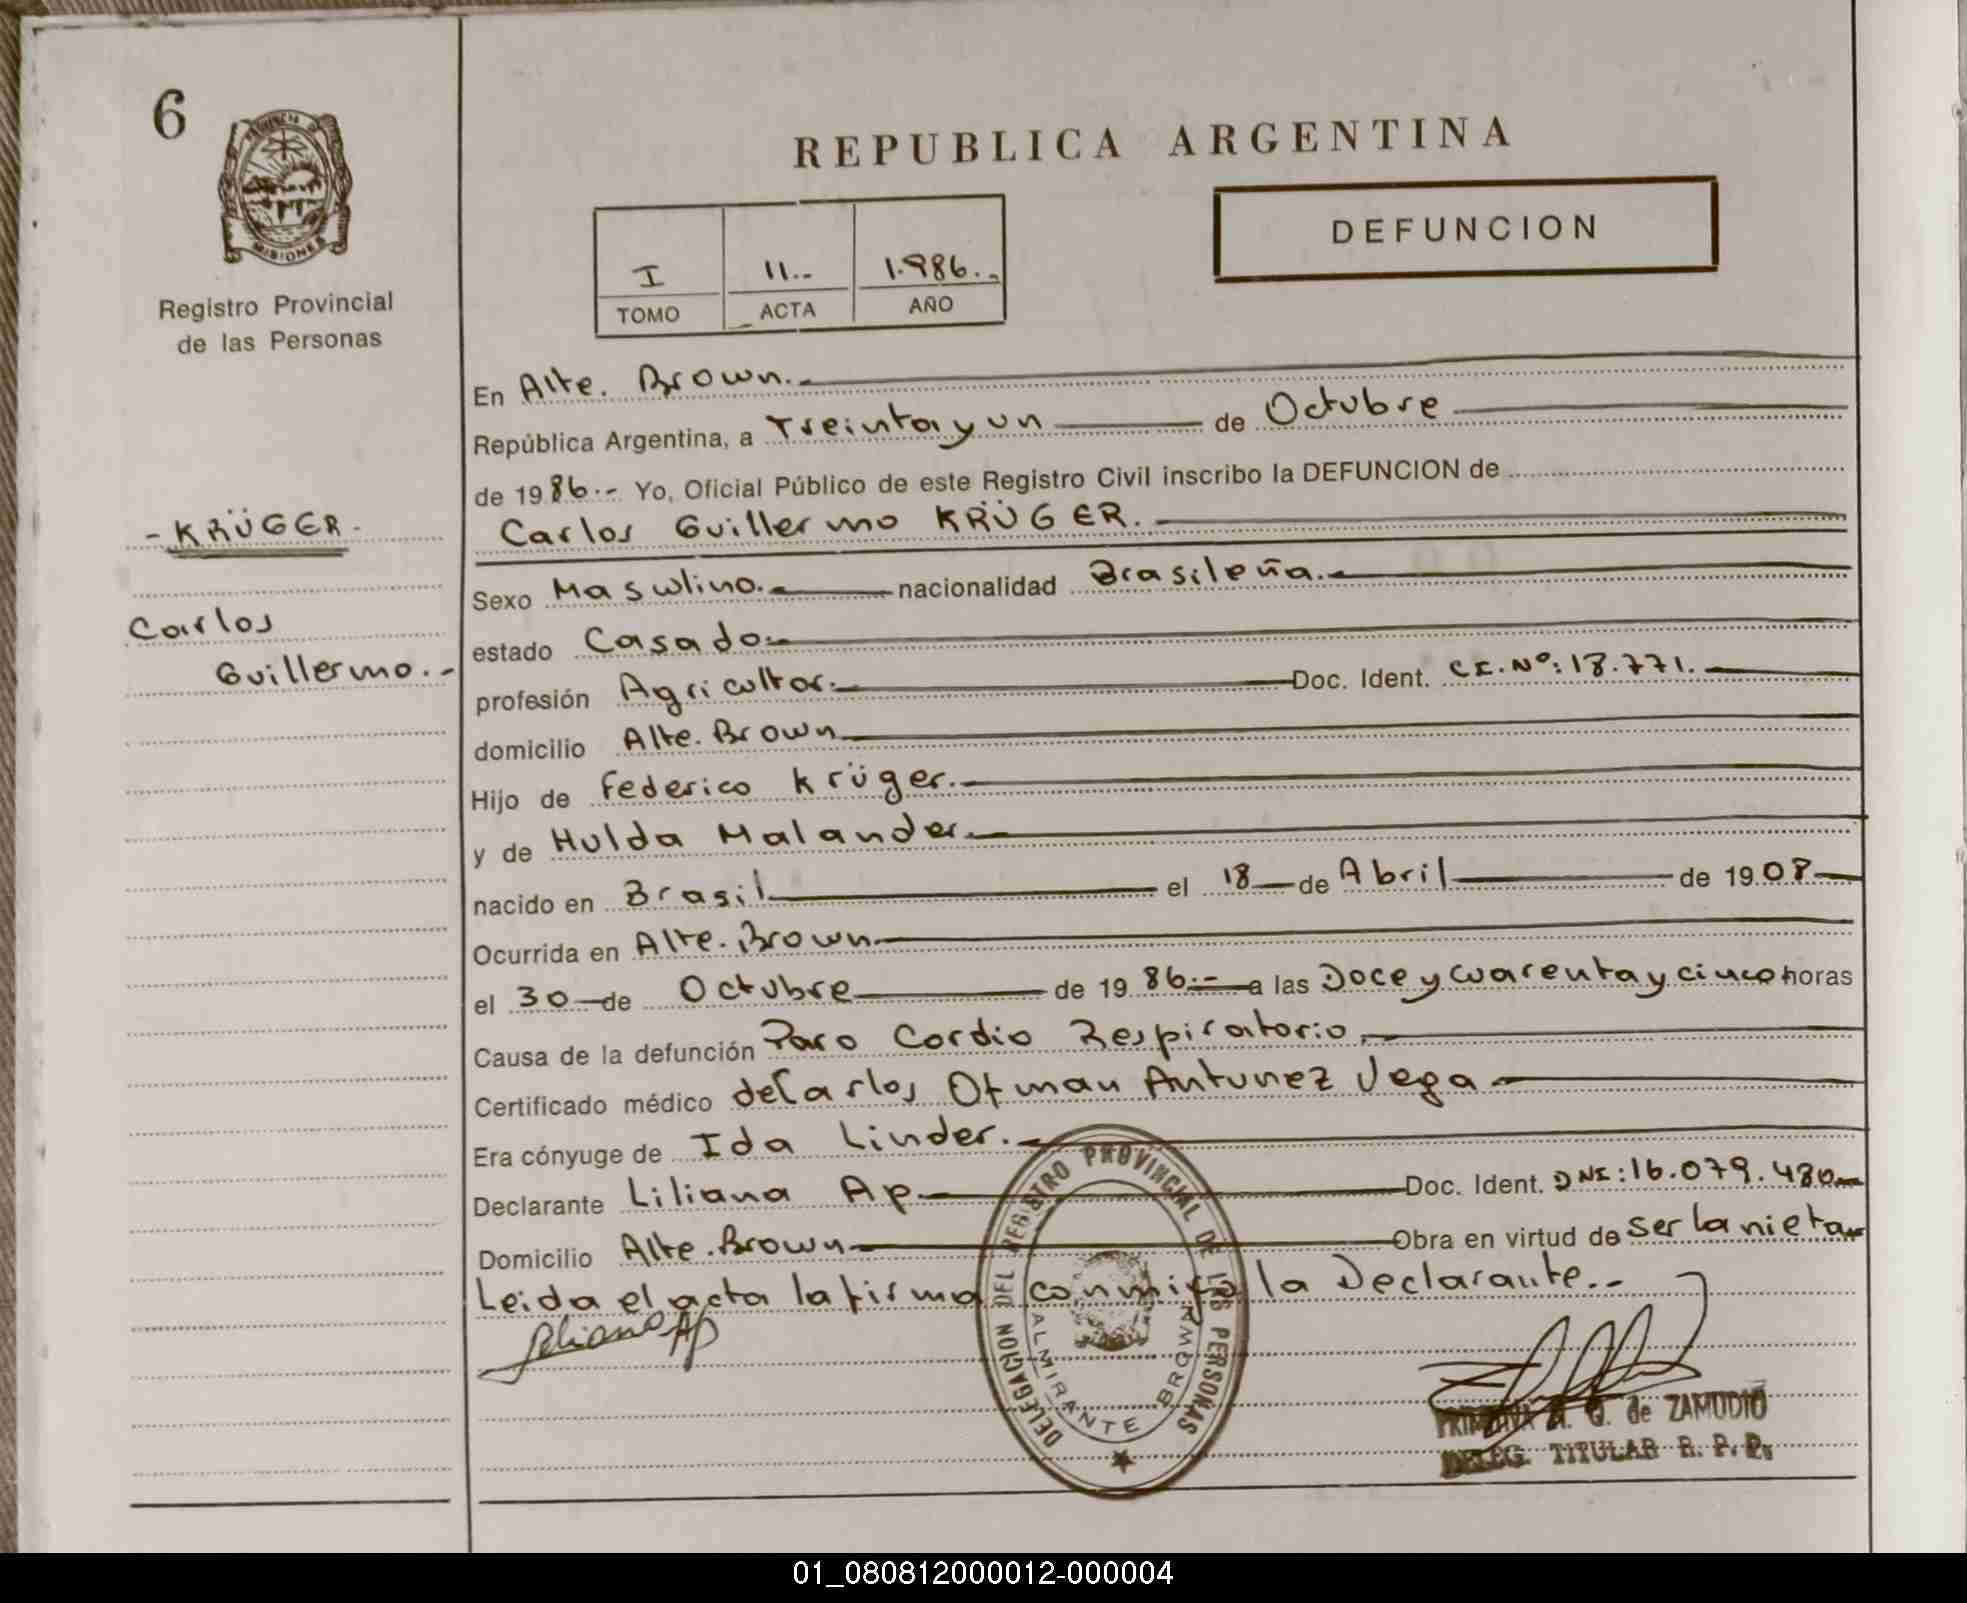 6
PROVINCIA DE
MISIONES
Registro Provincial
de las Personas
- KRÜGER -
Carlos
Guillermo.-
REPUBLICA ARGENTINA
I 11.- 1.986.-
TOMO ACTA AÑO
DEFUNCION
En Alte. Brown.
República Argentina, a Treinta y un de Octubre
de 1986.- Yo, Oficial Público de este Registro Civil inscribo la DEFUNCION de
Carlos Guillermo KRÜGER.
Sexo Masculino. nacionalidad Brasileña.
estado Casado.-
profesión Agricultor. Doc. Ident. C.I. Nº: 18.771.
domicilio Alte. Brown
Hijo de Federico Krüger.
y de Hulda Malander.
nacido en Brasil el 18 de Abril de 1908
Ocurrida en Alte. Brown
el 30 de Octubre de 1986.- a las Doce y cuarenta y cinco horas
Causa de la defunción Paro Cardio Respiratorio.
Certificado médico de Carlos Otman Antunez Vega
Era cónyuge de Ida Linder.
Declarante Liliana Ap Doc. Ident. DNI: 16.079.480
Domicilio Alte. Brown Obra en virtud de ser la nieta
Leida el acta la firma conmigo la Declarante.-
Liliana Ap
DELEGACION DEL REGISTRO PROVINCIAL DE LAS PERSONAS
ALMIRANTE BROWN
de ZAMUDIO
DELEG. TITULAR R. P. P.
01_080812000012-000004